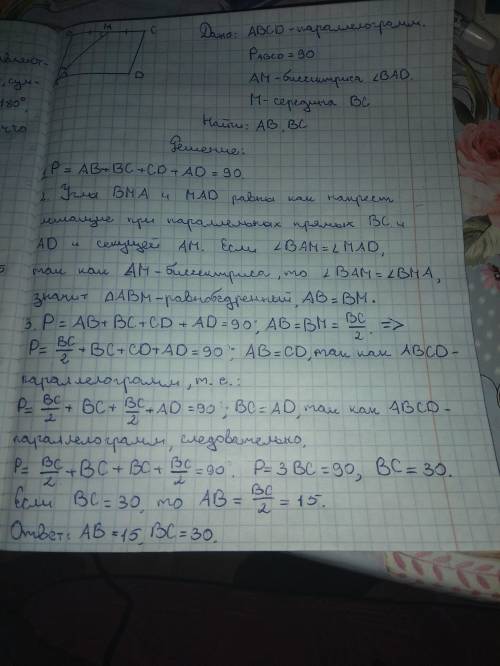 M C
Дано: ABCD - параллелограмм.
D
P ABCD = 90
AM - биссектриса ∠BAD.
M - середина BC
Найти: AB, BC
180°,
Решение:
1. P = AB + BC + CD + AD = 90.
2. Углы BMA и MAD равны как накрест
лежащие при параллельных прямых BC и
AD и секущей AM. Если ∠BAM = ∠MAD,
так как AM - биссектриса, то ∠BAM = ∠BMA,
значит ΔABM - равнобедренный, AB = BM.
3. P = AB + BC + CD + AD = 90; AB = BM = BC/2. =>
P = BC/2 + BC + CD + AD = 90; AB = CD, так как ABCD -
параллелограмм, т. е.:
P = BC/2 + BC + BC/2 + AD = 90; BC = AD, так как ABCD -
параллелограмм, следовательно,
P = BC/2 + BC + BC + BC/2 = 90. P = 3BC = 90, BC = 30.
Если BC = 30, то AB = BC/2 = 15.
Ответ: AB = 15, BC = 30.